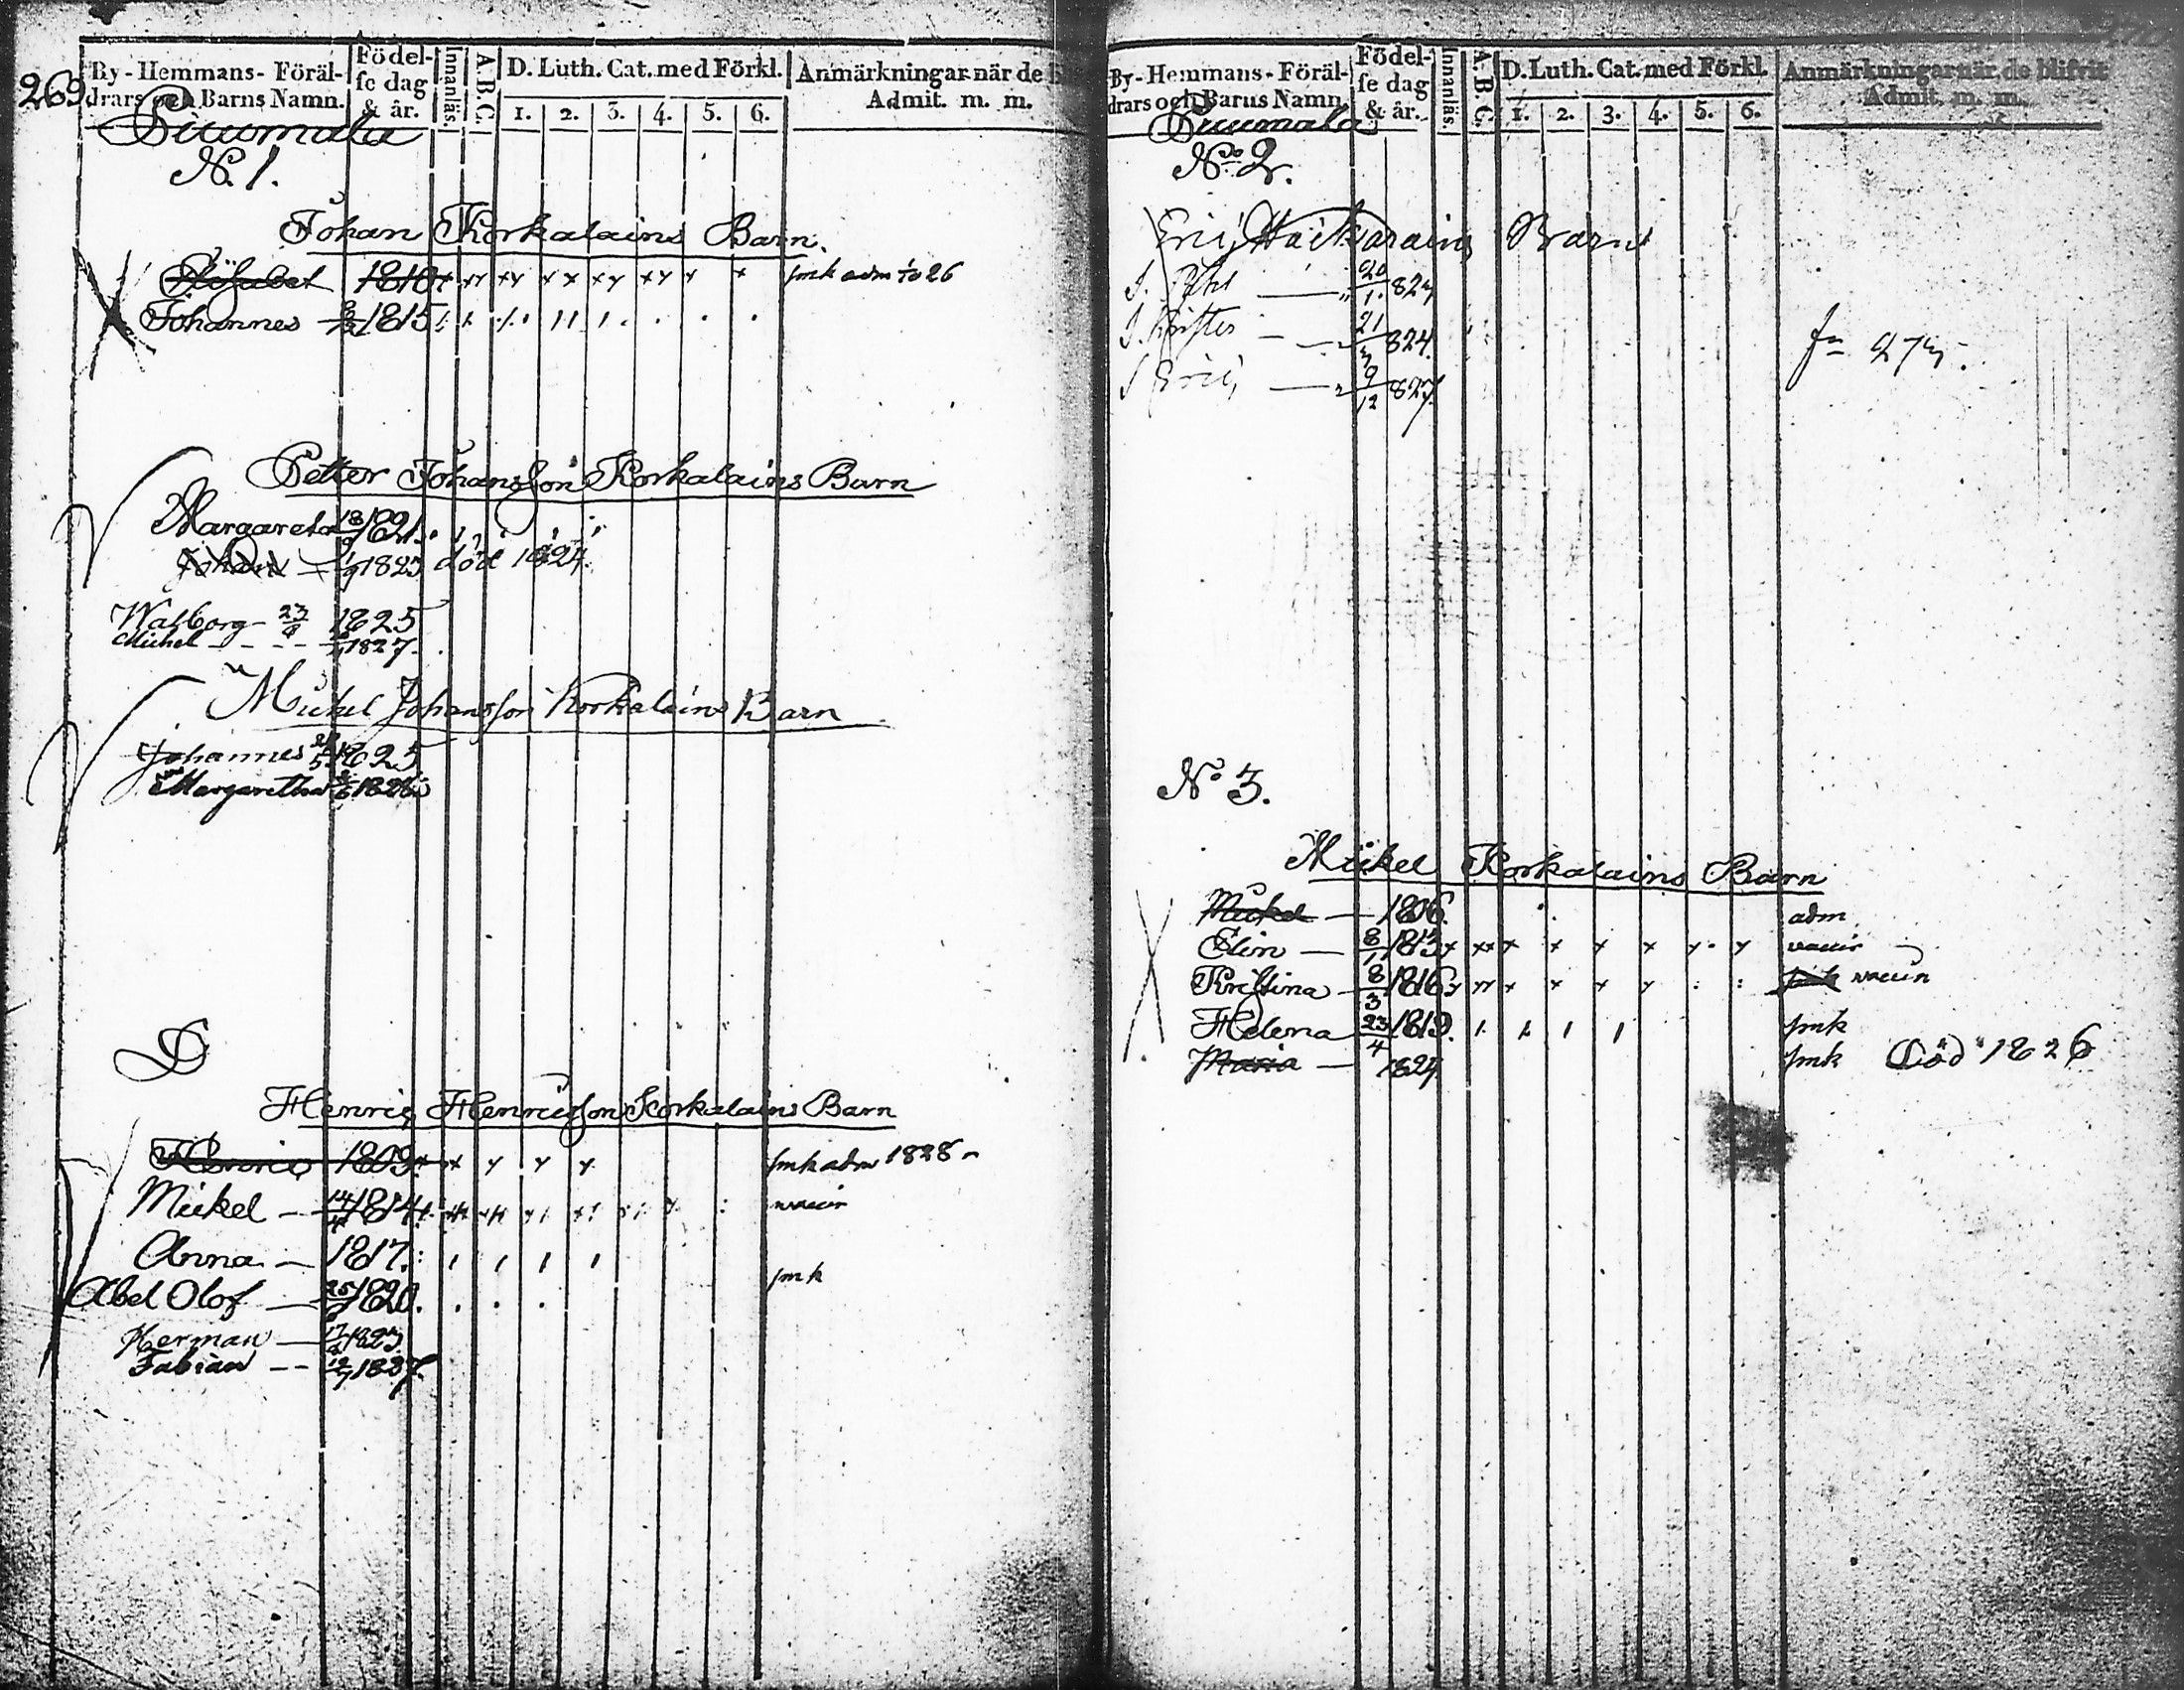 269
By-Hemmans-Föräl-
drars och Barns Namn.
Födel-
se dag
& år.
Innanläs.
A.B.C.
D. Luth. Cat. med Förkl.
1. 2. 3. 4. 5. 6.
Anmärkningar när de
Admit. m. m.
N. 1.
Johan Korkalains Barn.
1810 smk adm 26
Johannes 1815
Petter Johansson Korkalains Barn
Margareta 18 1821
Johan 1823 död 1824.
Walborg 23 1825
Michel 1827
Mickel Johansson Korkalains Barn
Johannes 1825
Margaretha
Henric Henricsson Korkalains Barn
Henric 1809 smk adm 1828
Mickel 14/4 1814 vaccin
Anna 1817
Abel Olof 25 1820. smk
Herman 17 1823
Fabian 12/7 1827
By-Hemmans-Föräl-
drars och Barns Namn
Födel-
se dag
& år.
Innanläs.
A.B.C.
D. Luth. Cat. med Förkl.
1. 2. 3. 4. 5. 6.
Anmärkningar när de blifvit
Admit. m. m.
No 2.
Eric Barn
20/1 82
21 824
Eric 9/12 827
No 3.
Mickel Korkalains Barn
Mickel 1806 adm
Elin 8/1 1813 vaccin
Kristina 8/3 1816 vaccin
Helena 23/4 1819 smk
Maria 1824 smk Död 1826